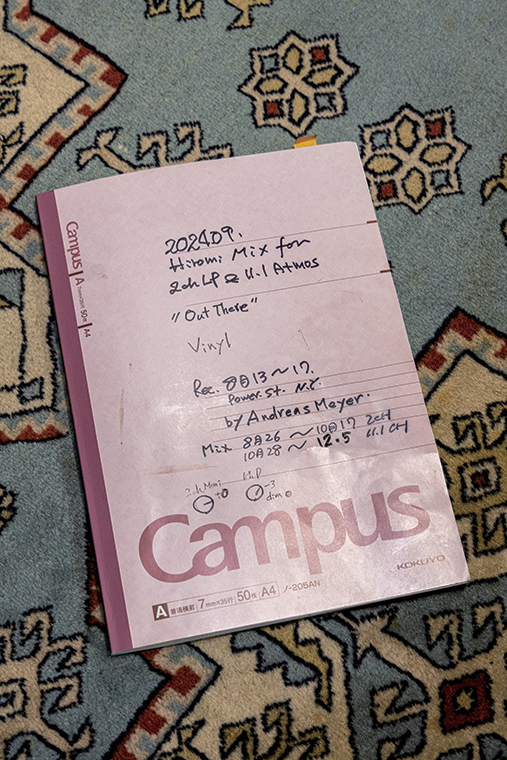 2024.09.
Hiromi Mix for
2ch LP & 11.1 Atmos
"Out There"
Vinyl
Rec. 8月13~17.
Power. St. N.Y.
by Andreas Meyer.
Mix 8月26 ~ 10月17 2CH
10月28 ~ 12.5 11.1 CH
+0
H.P
-3
dim
Campus
KOKUYO
A 普通横罫 7mm×35行 50枚 A4 ノ-205AN
Campus A 7mm×35行 50枚 A4